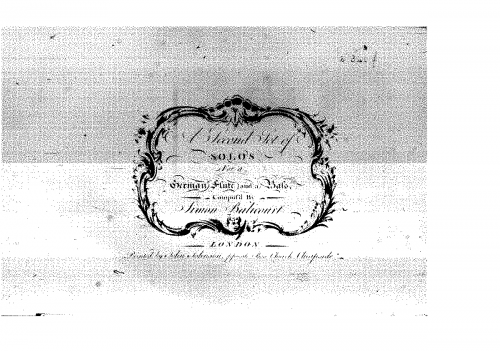 A Second Set of
SOLO'S
For a
German Flute and a Bass,
Compos'd By
Simon Balicourt
LONDON
Printed by John Johnson, opposite Bow Church Cheapside